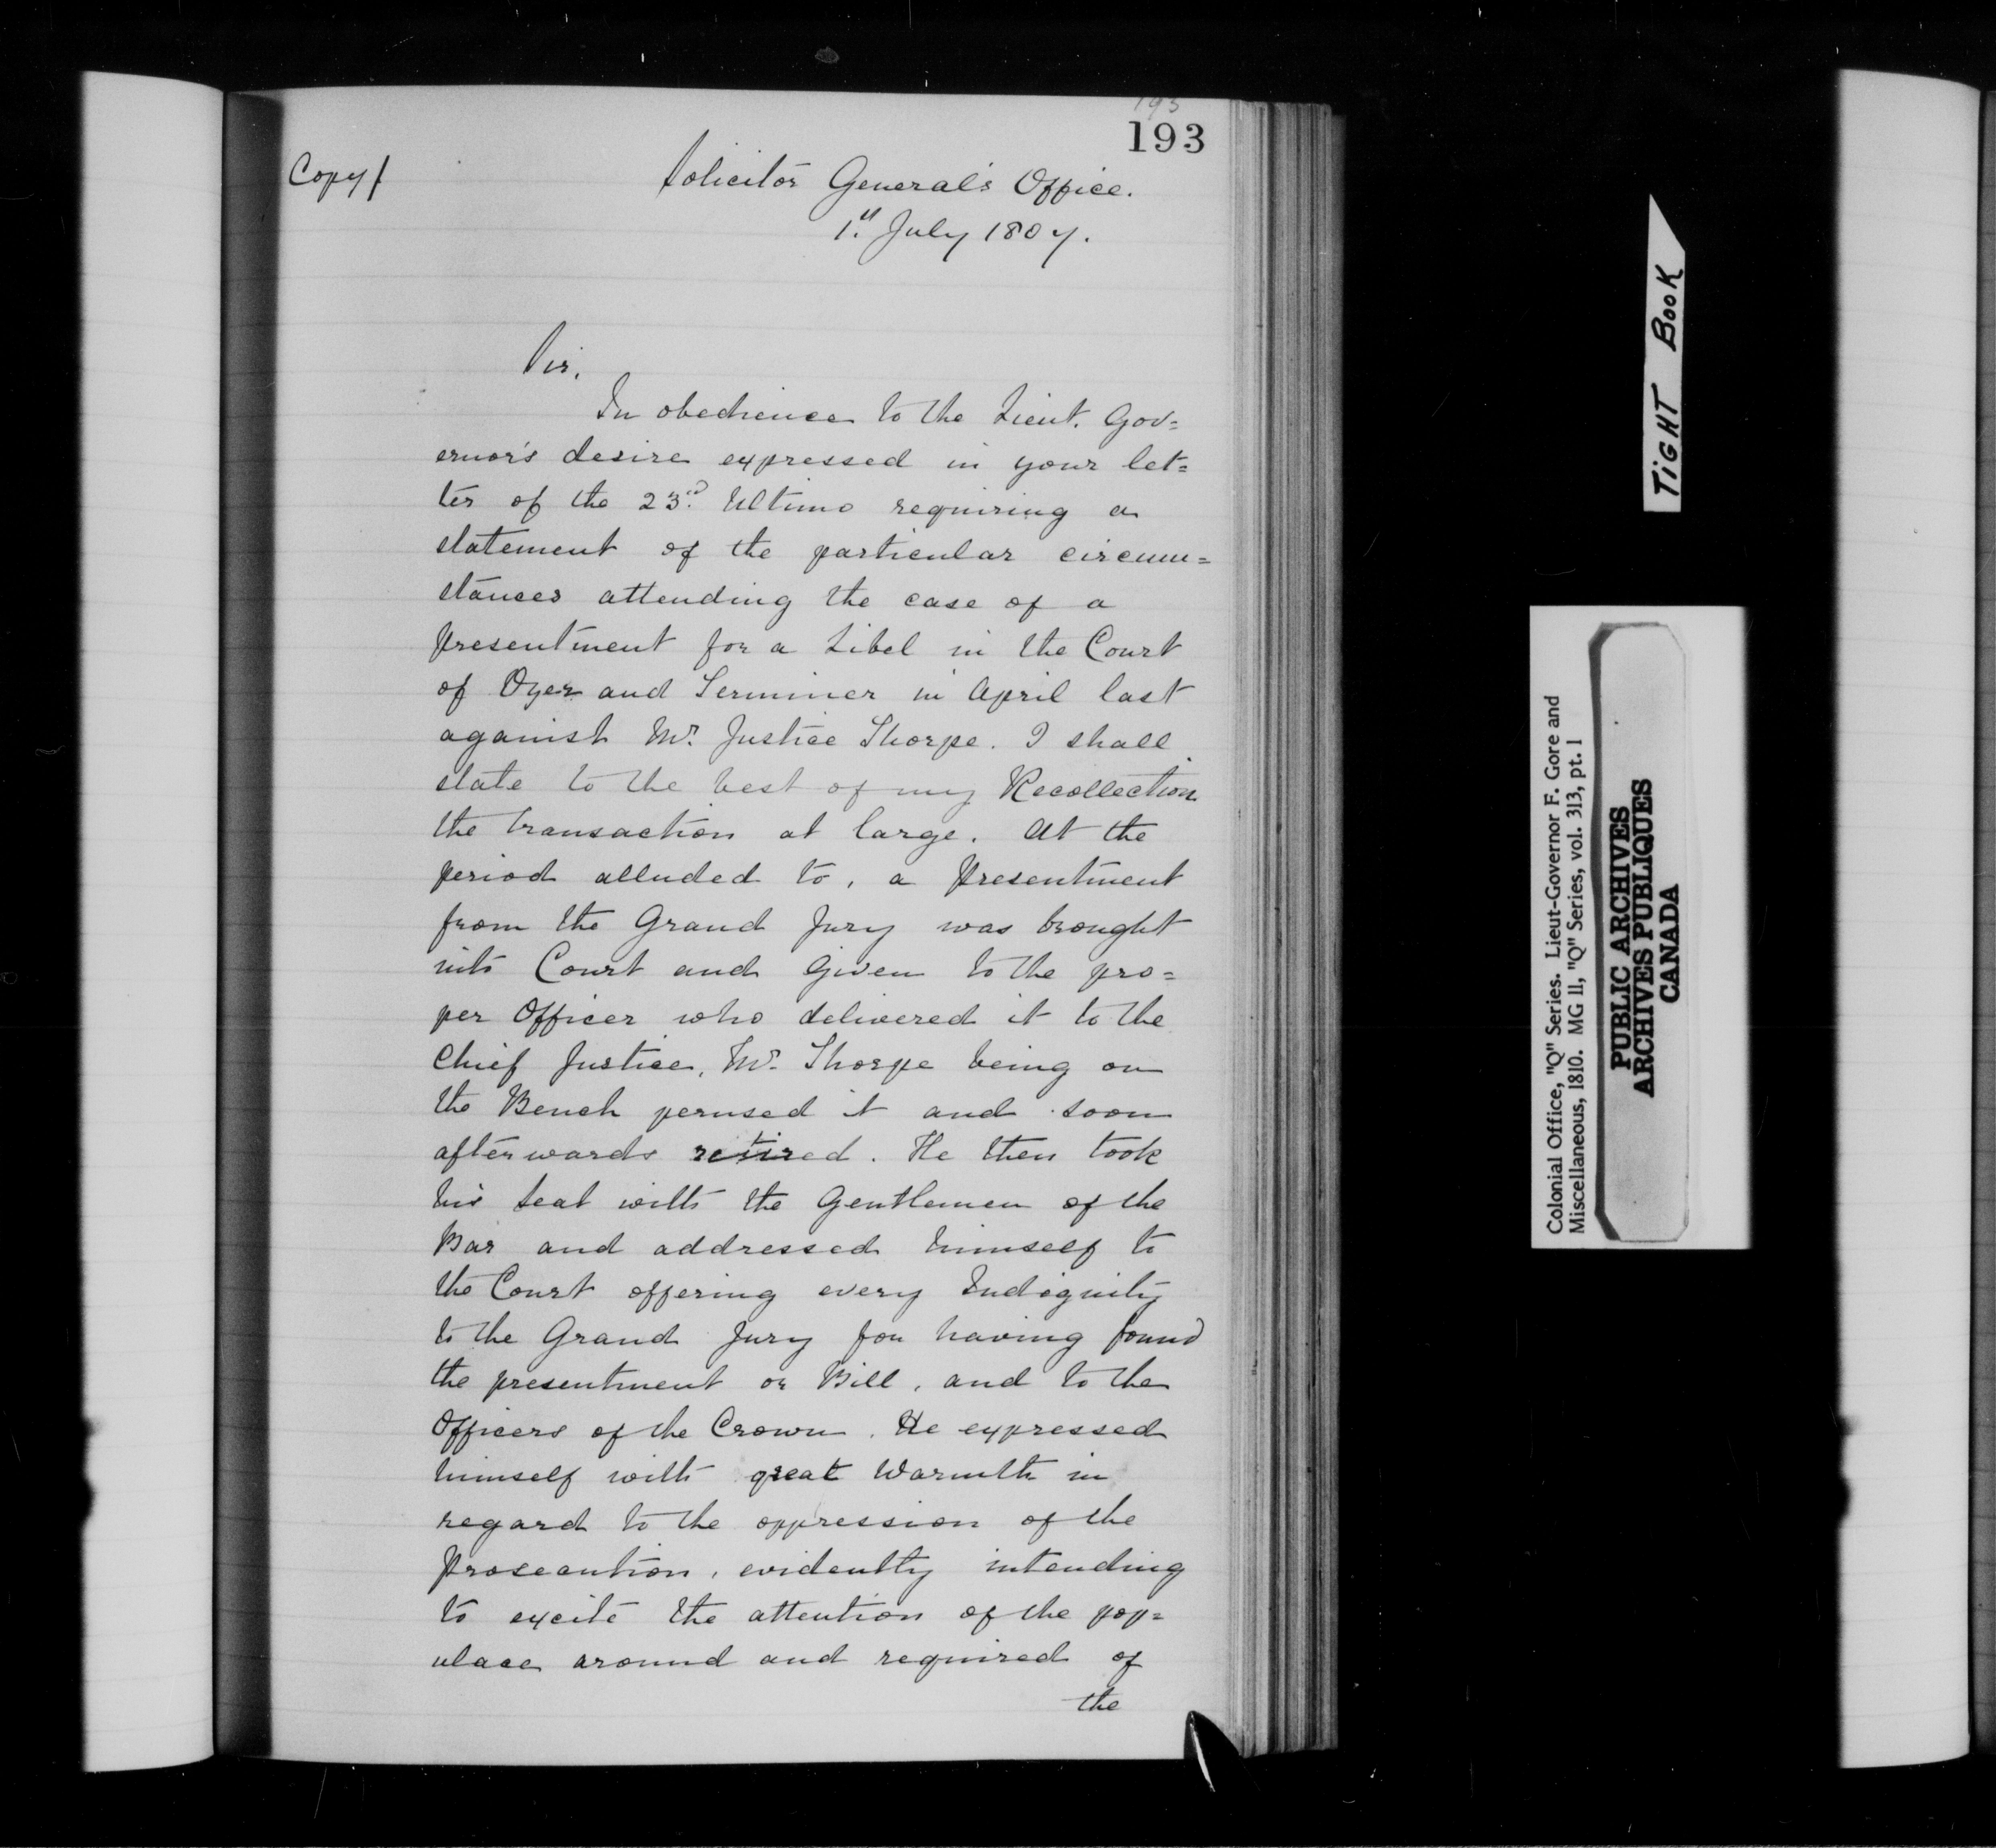 193
193
Copy/
Solicitor General's Office.
1st July 1807.
Sir,
In obedience to the Lieut. Gov=
ernor's desire expressed in your let=
ter of the 23rd Ultimo requiring a
statement of the particular circum=
stances attending the case of a
presentment for a Libel in the Court
of Oyer and Terminer in April last
against Mr. Justice Thorpe. I shall
state to the best of my Recollection
the transaction at large. At the
period alluded to, a presentment
from the Grand Jury was brought
into Court and given to the pro=
per Officer who delivered it to the
Chief Justice, Mr. Thorpe being on
the Bench perused it and soon
afterwards retired. He then took
his seat with the Gentlemen of the
Bar and addressed himself to
the Court offering every Indignity
to the Grand Jury for having found
the presentment or Bill, and to the
Officers of the Crown. He expressed
himself with great Warmth in
regard to the oppression of the
prosecution, evidently intending
to excite the attention of the pop=
ulace around and required of
the
TIGHT BOOK
Colonial Office, "Q" Series. Lieut-Governor F. Gore and
Miscellaneous, 1810. MG 11, "Q" Series, vol. 313, pt. 1
PUBLIC ARCHIVES
ARCHIVES PUBLIQUES
CANADA